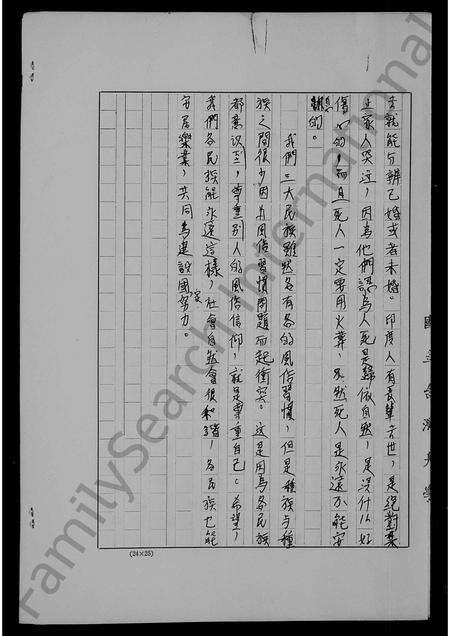 去就能分辨已婚或者未婚。印度人有長輩去世，是絕對禁
止家人哭泣，因為他們認為人死是歸依自然，是沒什么好
傷心的，而且死人一定要用火葬，不然死人是永遠不能安
息的。
我們三大民族雖然各有各的風俗習慣，但是種族与種
族之間很少因为風俗習慣問題而起衝突。这是因為各民族
都意识到，尊重別人的風俗信仰，就是尊重自己。希望，
我們各民族能永遠這樣，社會自然會很和諧，各民族也能
安居樂業，共同為建設國家努力。
國立台灣大學
(24×25)
FamilySearch International